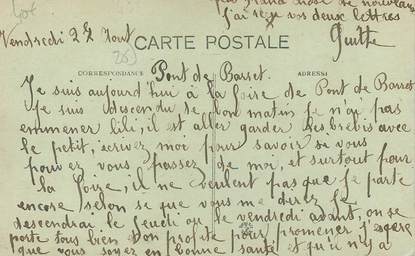 pas grand chose de nouveau
j'ai reçu vos deux lettres
Vendredi 22 Aout
Guitte
CARTE POSTALE
CORRESPONDANCE
ADRESSE
Pont de Barret.
Je suis aujourd'hui à la foire de Pont de Barret
je suis descendu se bon matin je n'ai pas
emmener lili, il est aller garder les brebis avec
le petit, écrivez moi pour savoir si vous
pouvez vous passez de moi, et surtout pour
la foire, il ne veulent pas que je parte
encore selon se que vous me direz je
descendrai le jeudi ou le vendredi avant, on se
porte tous bien et on profite pour promener j'espère
que vous soyez en bonne santé et qu'il n'y a